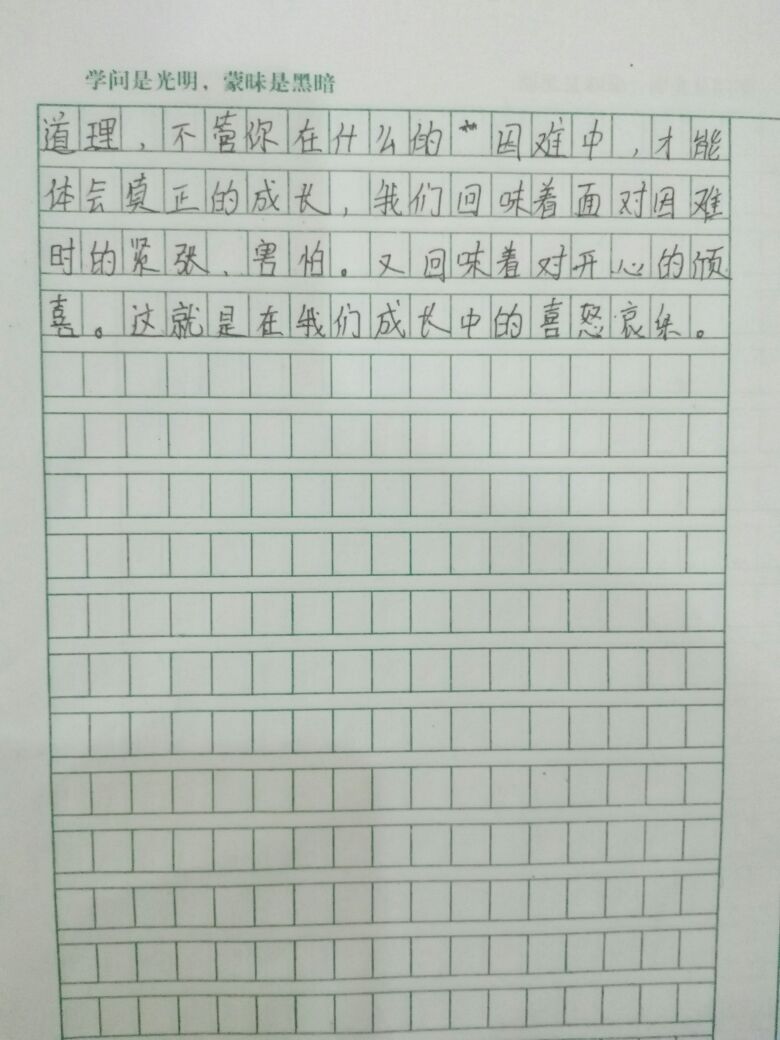 学问是光明，蒙昧是黑暗
道理，不管你在什么的困难中，才能
体会真正的成长，我们回味着面对困难
时的紧张、害怕。又回味着对开心的
喜。这就是在我们成长中的喜怒哀乐。